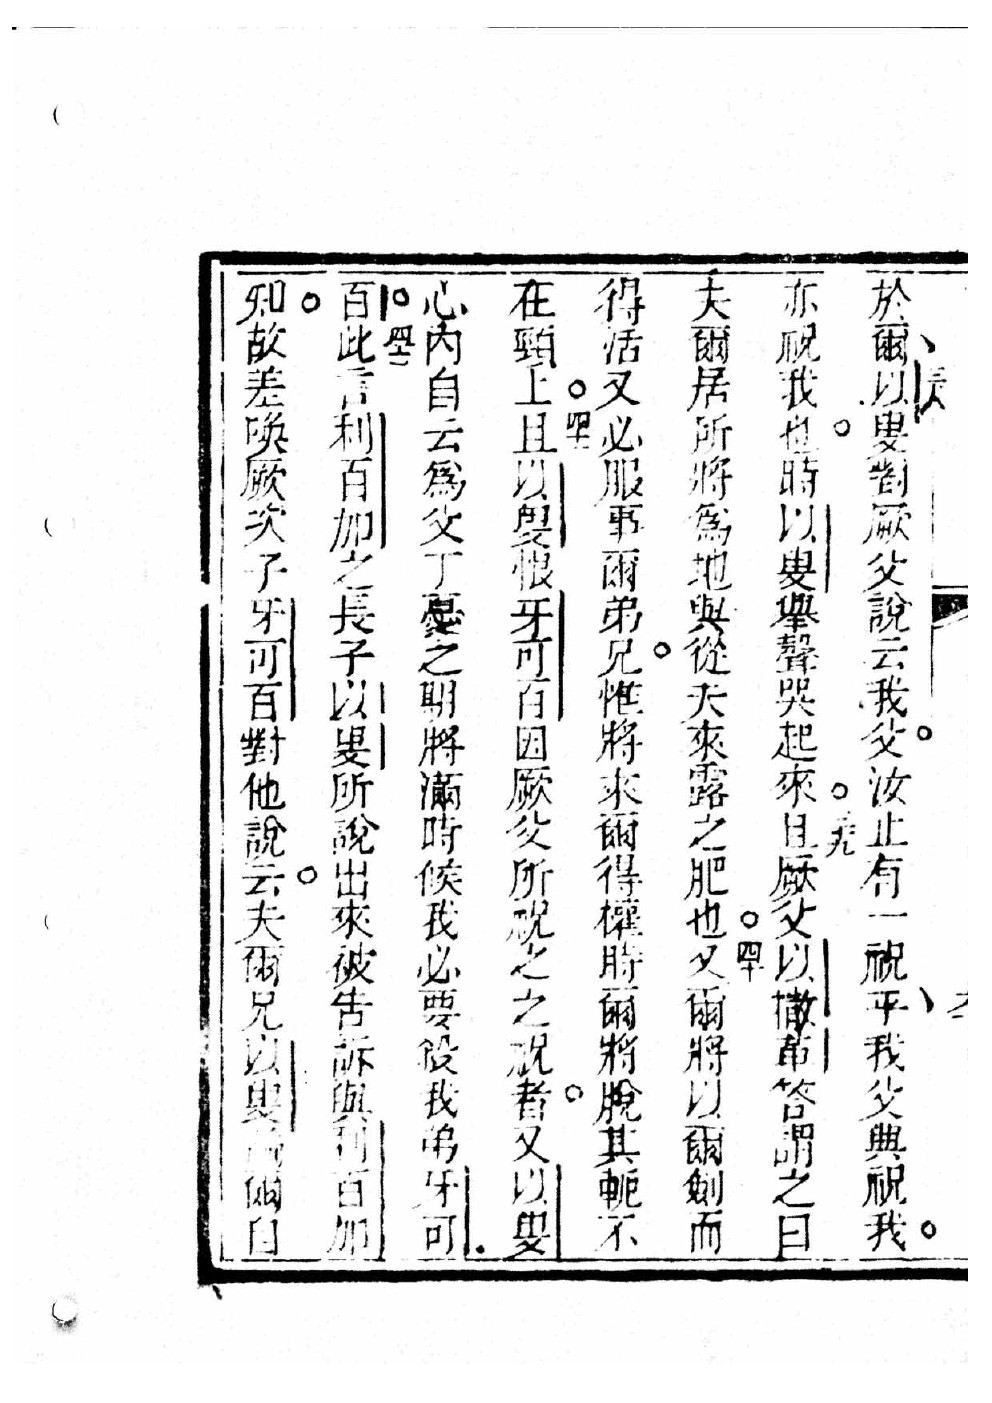 於爾三八以叟對厥父說云我父汝止有一祝乎我父與祝我
亦祝我也時以叟舉聲哭起來三九且厥父以撒革答謂之曰
夫爾居所將爲地與從天來露之肥也四十又爾將以爾劍而
得活又必服事爾弟兄惟將來爾得權時爾將脫其軛不
在頸上四一且以叟恨牙可百因厥父所祝之之祝者又以叟
心內自云爲父丁憂之期將滿時候我必要殺我弟牙可
百四二此言利百加之長子以叟所說出來被告訴與利百加
知故差喚厥次子牙可百對他說云夫爾兄以叟爾自